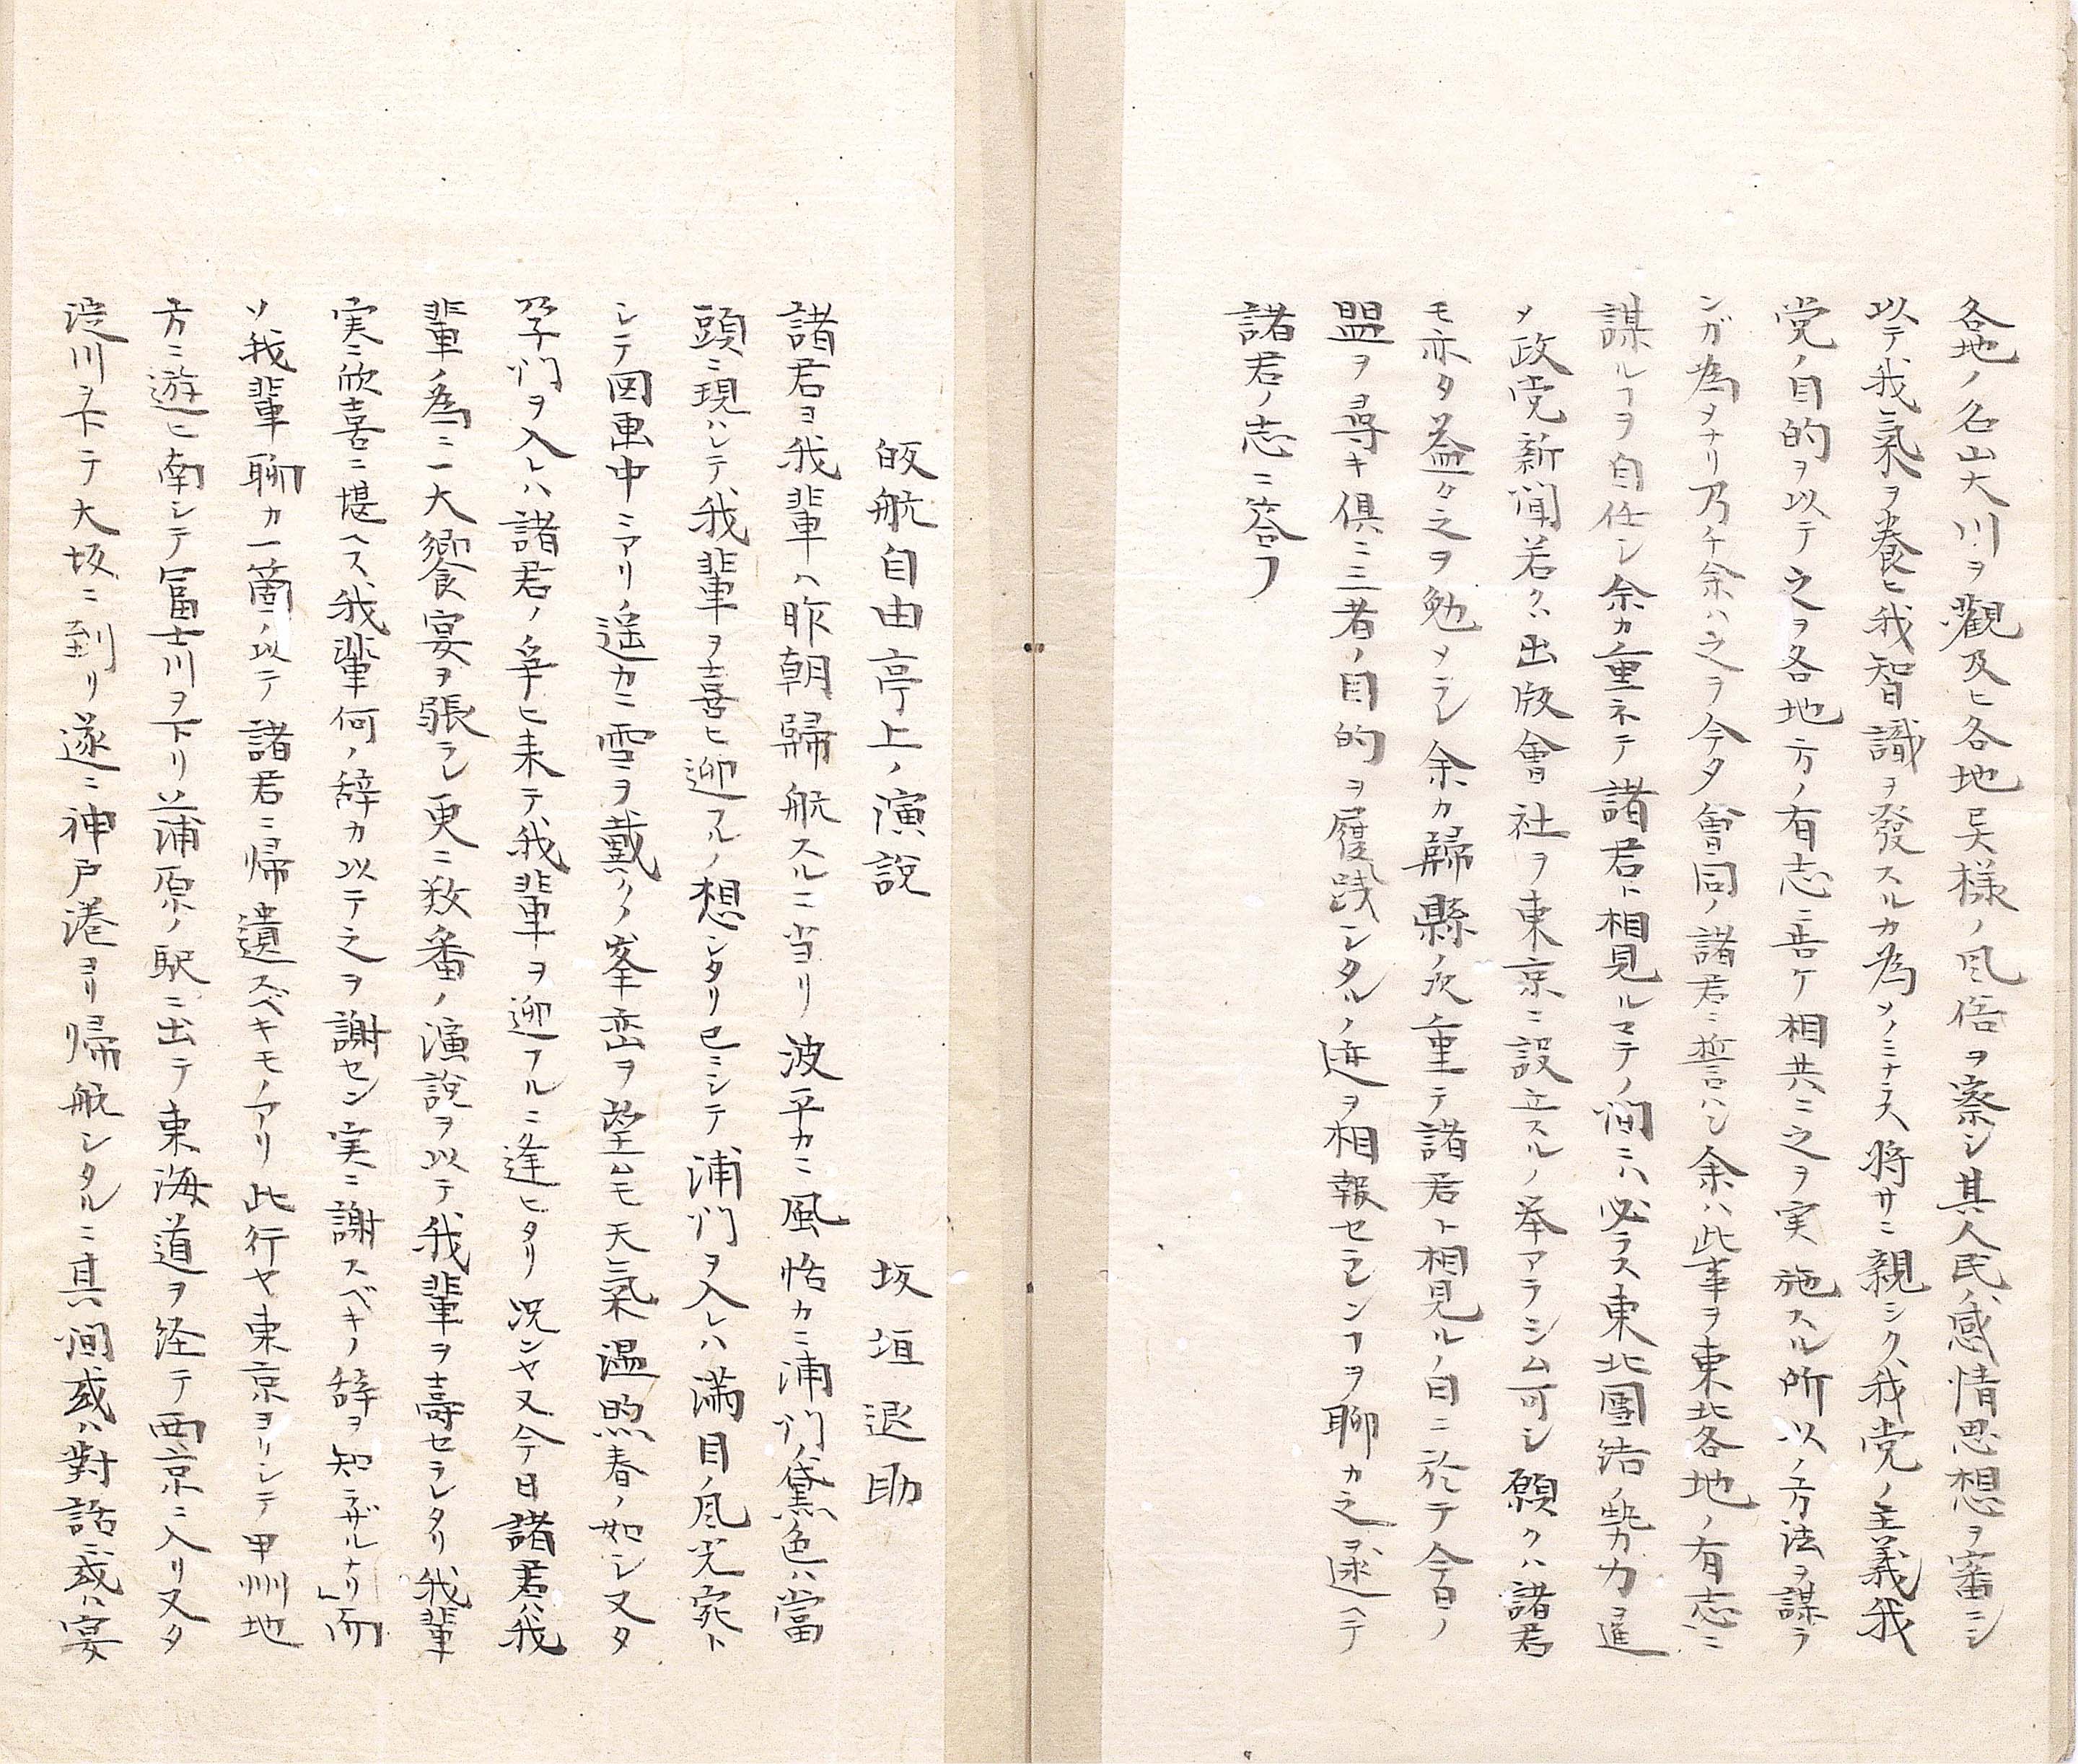 各地ノ名山大川ヲ觀及ヒ各地異様ノ風俗ヲ察シ其人民ノ感情思想ヲ審ニシ
以テ我氣ヲ養ヒ我智識ヲ發スルカ為メノミナラス將サニ親シク我党ノ主義我
党ノ目的ヲ以テ之ヲ各地方ノ有志ニ告ケ相共ニ之ヲ実施スル所以ノ方法ヲ謀ラ
ンガ為ヲナリ乃チ余ハ之ヲ今夕會同ノ諸君ニ誓ハン余ハ此事ヲ東北各地ノ有志ニ
謀ルヿヲ自任シ余カ重ネテ諸君ト相見ルマテノ間ニハ必ラス東北團結ノ勢力ヲ進
メ政党新聞若クハ出版會社ヲ東京ニ設立スルノ挙アラシム可シ願クハ諸君
モ亦タ益々之ヲ勉メラレ余カ歸縣ノ次重テ諸君ト相見ルノ日ニ於テ今日ノ
盟ヲ尋キ倶ニ三者ノ目的ヲ履践シタルノ迹ヲ相報セラレンヿヲ聊カ之ヲ述ヘテ
諸君ノ志ニ答フ
皈航自由亭上ノ演說 坂垣退助
諸君ヨ我輩ハ昨朝歸航スルニ当リ波平カニ風恬カニ浦門ノ黛色ハ當
頭ニ現ハレテ我輩ヲ喜ヒ迎フルノ想シタリ已ニシテ浦門ヲ入レハ滿目ノ風光宛ト
シテ図画中ニアリ遥カニ雪ヲ戴クノ峯巒ヲ望ムモ天氣温煦春ノ如シ又タ
孕門ヲ入レハ諸君ノ争ヒ来テ我輩ヲ迎フルニ逢ヒタリ况ンヤ又今日諸君ハ我
輩ノ為ニ一大饗宴ヲ張ラレ更ニ数番ノ演說ヲ以テ我輩ヲ壽セラレタリ我輩
実ニ欣喜ニ堪ヘス我輩何ノ辞カ以テ之ヲ謝セン実ニ謝スベキノ辞ヲ知ラザルナリ」而
ソ我輩聊カ一箇ノ以テ諸君ニ帰遺スベキモノアリ此行ヤ東京ヨリシテ甲州地
方ニ遊ヒ南シテ冨士川ヲ下リ蒲原ノ駅ニ出テ東海道ヲ経テ西京ニ入リ又タ
淀川ヲ下テ大坂ニ到リ遂ニ神戸港ヨリ帰航シタルニ其間或ハ對話ニ或ハ宴